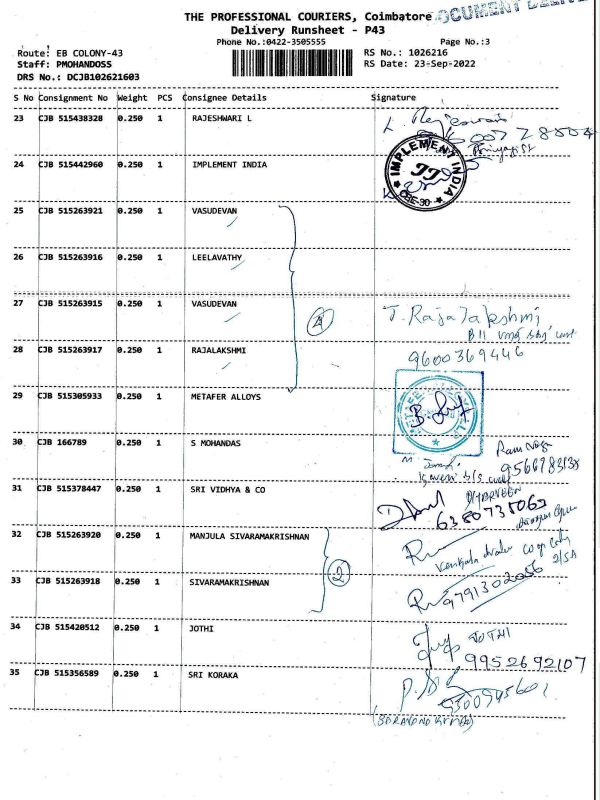 THE PROFESSIONAL COURIERS, Coimbatore
Delivery Runsheet - P43
Phone No.:0422-3505555 Page No.:3
Route: EB COLONY-43 RS No.: 1026216
Staff: PMOHANDOSS RS Date: 23-Sep-2022
DRS No.: DCJB102621603
S No Consignment No Weight PCS Consignee Details Signature
23 CJB 515438328 0.250 1 RAJESHWARI L
24 CJB 515442960 0.250 1 IMPLEMENT INDIA
IMPLEMENT INDIA
CBE-30
25 CJB 515263921 0.250 1 VASUDEVAN
26 CJB 515263916 0.250 1 LEELAVATHY
27 CJB 515263915 0.250 1 VASUDEVAN
4
T. Rajalakshmi
28 CJB 515263917 0.250 1 RAJALAKSHMI
9600369446
29 CJB 515305933 0.250 1 METAFER ALLOYS
30 CJB 166789 0.250 1 S MOHANDAS
31 CJB 515378447 0.250 1 SRI VIDHYA & CO
32 CJB 515263920 0.250 1 MANJULA SIVARAMAKRISHNAN
2
33 CJB 515263918 0.250 1 SIVARAMAKRISHNAN
9791302056
34 CJB 515420512 0.250 1 JOTHI
JOTHI
9952692107
35 CJB 515356589 0.250 1 SRI KORAKA